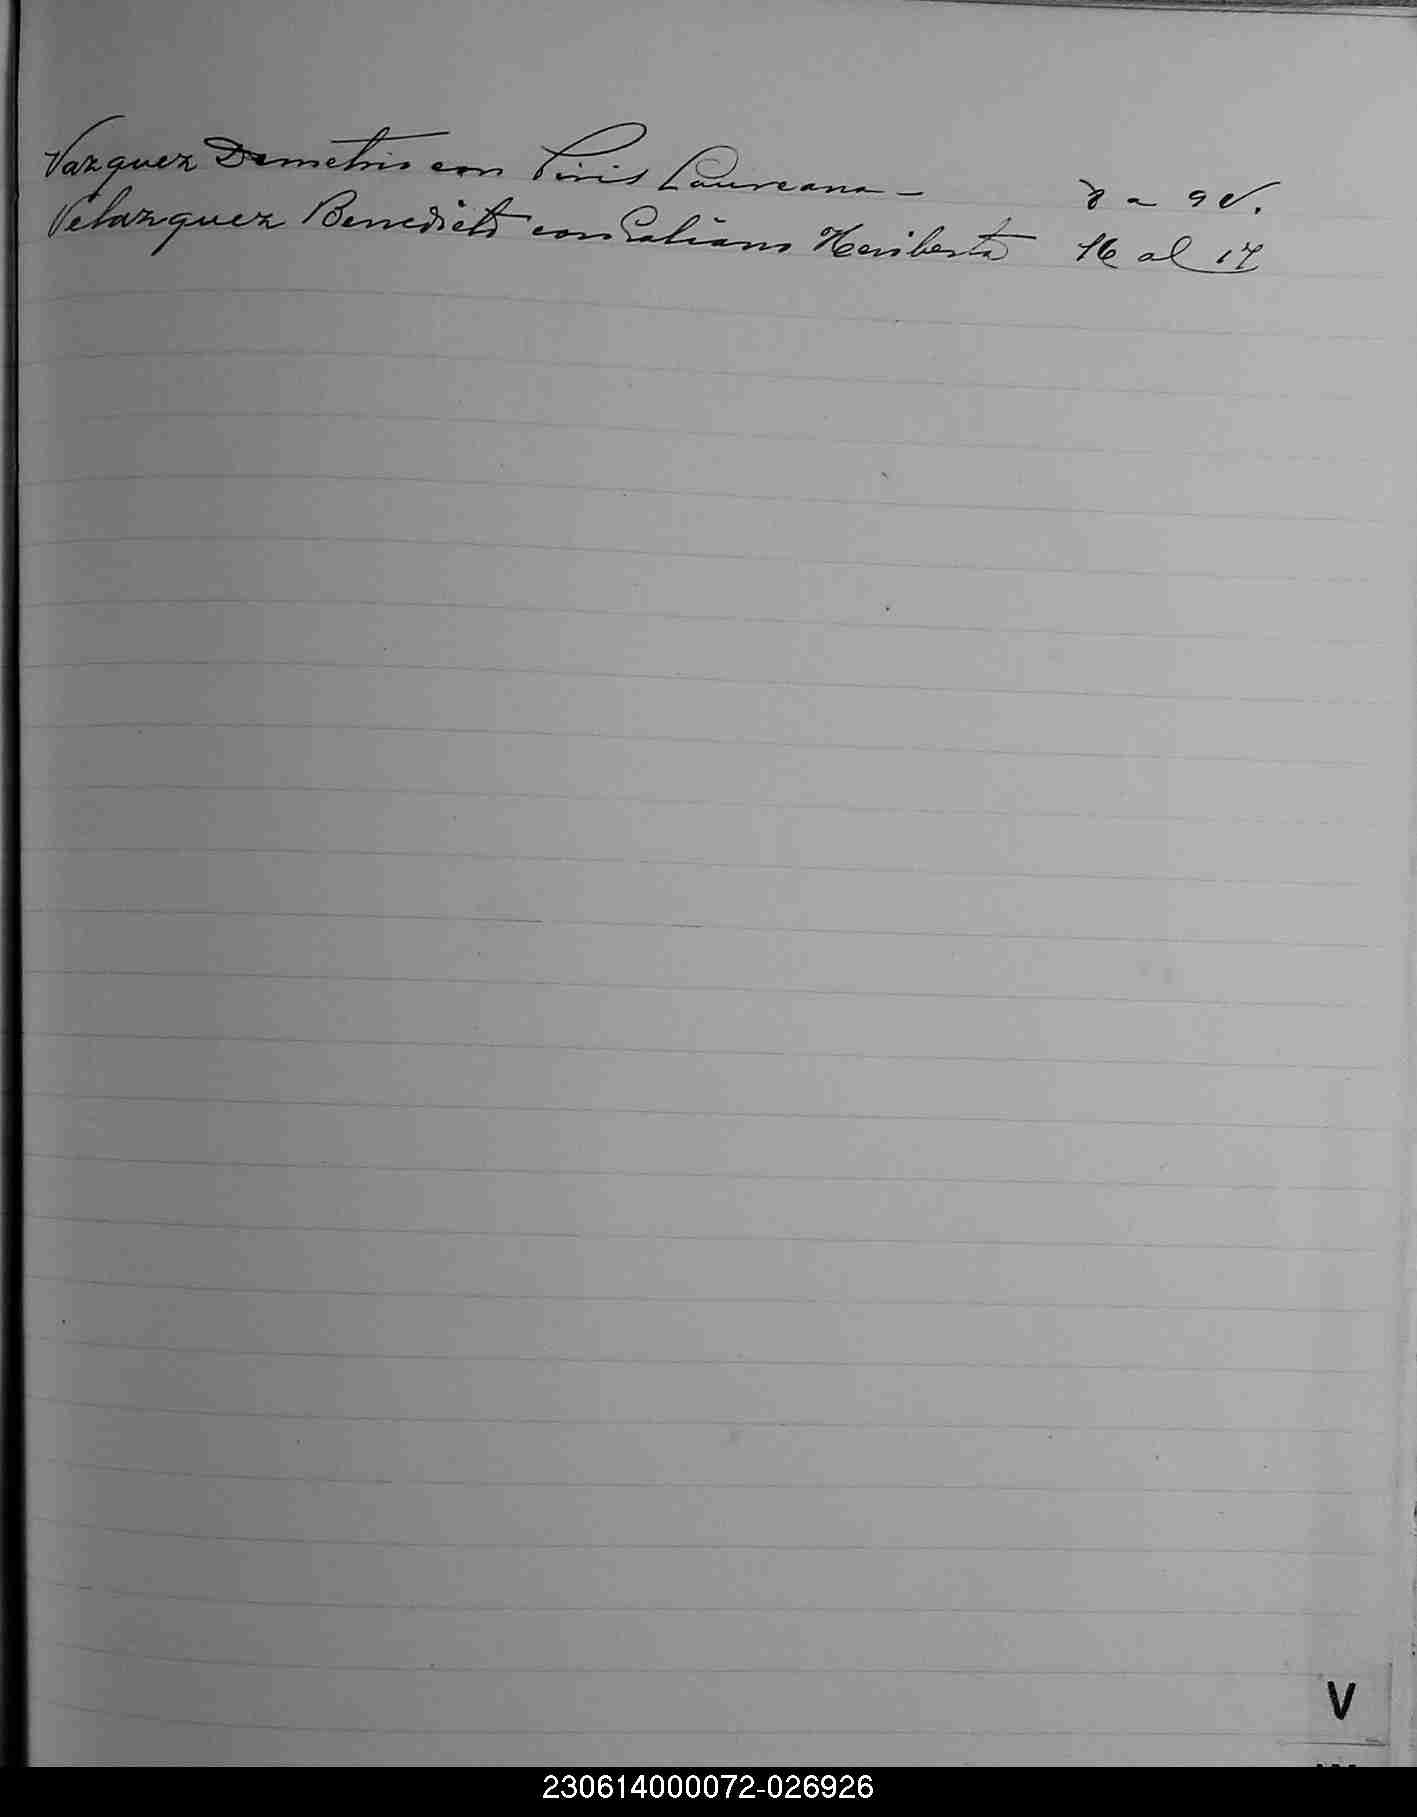 Vazquez Demetrio con Piris Laureana - 8 a 9 v.
Velazquez Benedicto con Galiano Heriberta 16 al 17
V
230614000072-026926